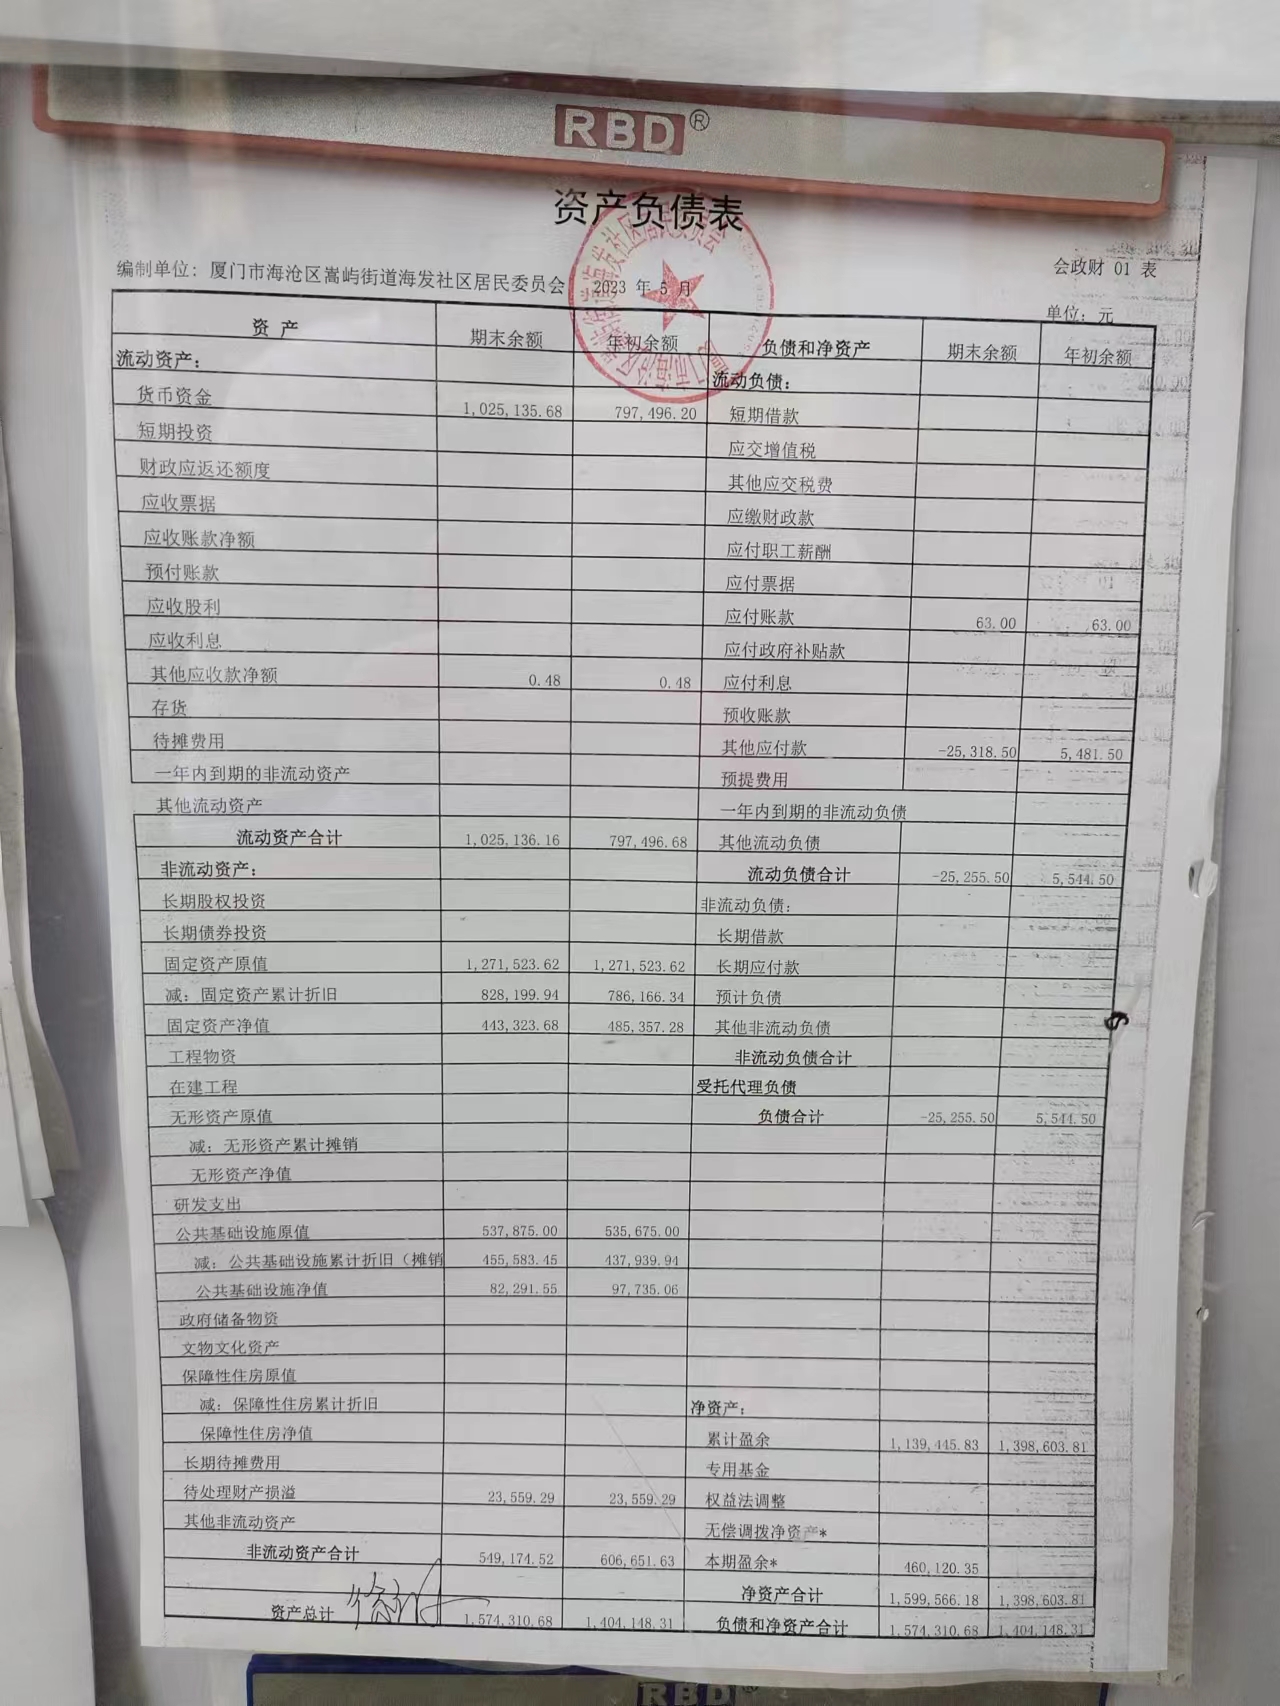 RBD®
资产负债表
会政财 01 表
编制单位：厦门市海沧区嵩屿街道海发社区居民委员会 2023 年 5 月
单位：元
资 产 期末余额 年初余额 负债和净资产 期末余额 年初余额
流动资产： 流动负债：
货币资金 1,025,135.68 797,496.20 短期借款
短期投资 应交增值税
财政应返还额度 其他应交税费
应收票据 应缴财政款
应收账款净额 应付职工薪酬
预付账款 应付票据
应收股利 应付账款 63.00 63.00
应收利息 应付政府补贴款
其他应收款净额 0.48 0.48 应付利息
存货 预收账款
待摊费用 其他应付款 -25,318.50 5,481.50
一年内到期的非流动资产 预提费用
其他流动资产 一年内到期的非流动负债
流动资产合计 1,025,136.16 797,496.68 其他流动负债
非流动资产： 流动负债合计 -25,255.50 5,544.50
长期股权投资 非流动负债：
长期债券投资 长期借款
固定资产原值 1,271,523.62 1,271,523.62 长期应付款
减：固定资产累计折旧 828,199.94 786,166.34 预计负债
固定资产净值 443,323.68 485,357.28 其他非流动负债
工程物资 非流动负债合计
在建工程 受托代理负债
无形资产原值 负债合计 -25,255.50 5,544.50
减：无形资产累计摊销
无形资产净值
研发支出
公共基础设施原值 537,875.00 535,675.00
减：公共基础设施累计折旧（摊销 455,583.45 437,939.94
公共基础设施净值 82,291.55 97,735.06
政府储备物资
文物文化资产
保障性住房原值
减：保障性住房累计折旧 净资产：
保障性住房净值 累计盈余 1,139,445.83 1,398,603.81
长期待摊费用 专用基金
待处理财产损溢 23,559.29 23,559.29 权益法调整
其他非流动资产 无偿调拨净资产*
非流动资产合计 549,174.52 606,651.63 本期盈余* 460,120.35
净资产合计 1,599,566.18 1,398,603.81
资产总计 1,574,310.68 1,404,148.31 负债和净资产合计 1,574,310.68 1,404,148.31
RBD®